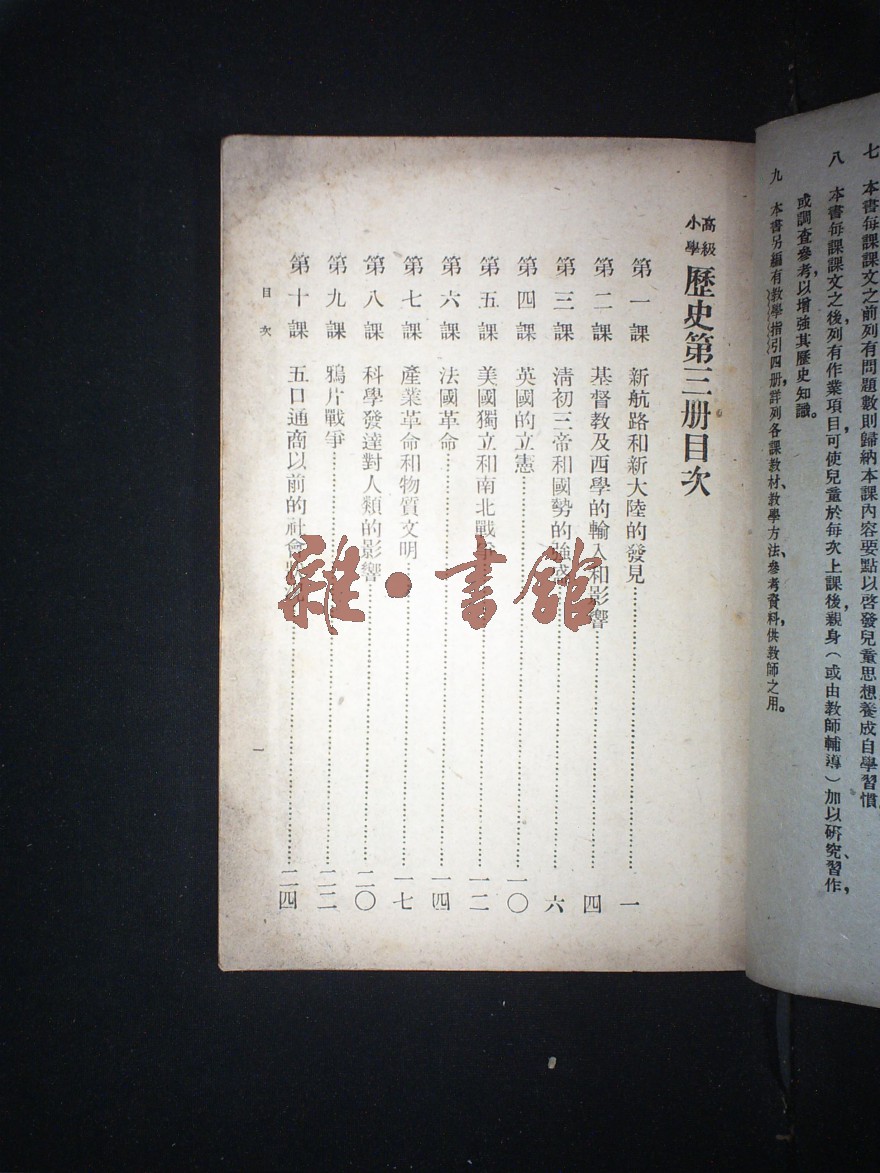 七 本書每課課文之前列有問題數則歸納本課內容要點以啓發兒童思想養成自學習慣
八 本書每課課文之後，列有作業項目，可使兒童於每次上課後，親身（或由教師輔導）加以研究、習作，
或調查參考，以增強其歷史知識。
九 本書另編有教學指引四册，詳列各課教材、教學方法、參考資料，供教師之用。
高級小學 歷史第三册目次
第一課 新航路和新大陸的發見……一
第二課 基督教及西學的輸入和影響……四
第三課 淸初三帝和國勢的強盛……六
第四課 英國的立憲……一〇
第五課 美國獨立和南北戰爭……一二
第六課 法國革命……一四
第七課 產業革命和物質文明……一七
第八課 科學發達對人類的影響……二〇
第九課 鴉片戰爭……二二
第十課 五口通商以前的社會……二四
目次
一
雜·書館